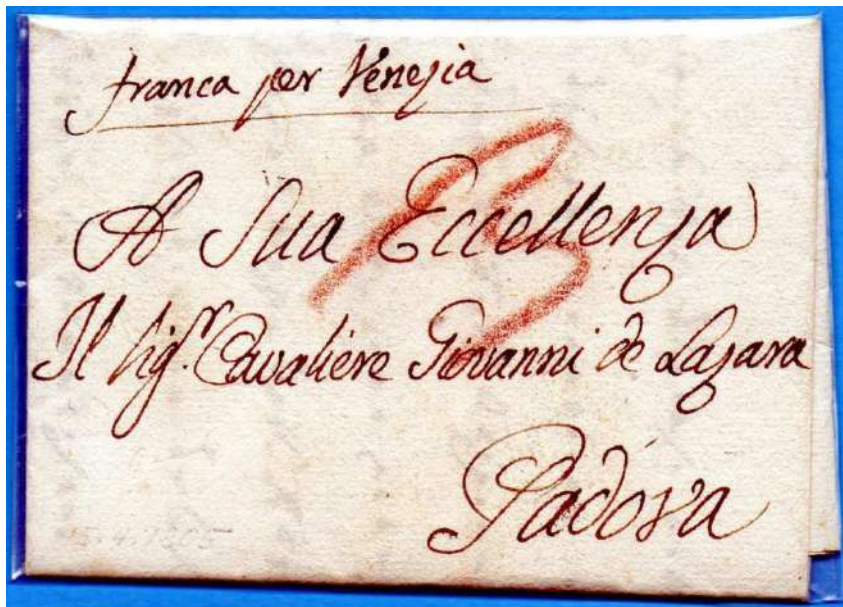 franca per Venezia
3
A Sua Eccellenza
Il Sig.r Cavaliere Giovanni de Lazara
Padova